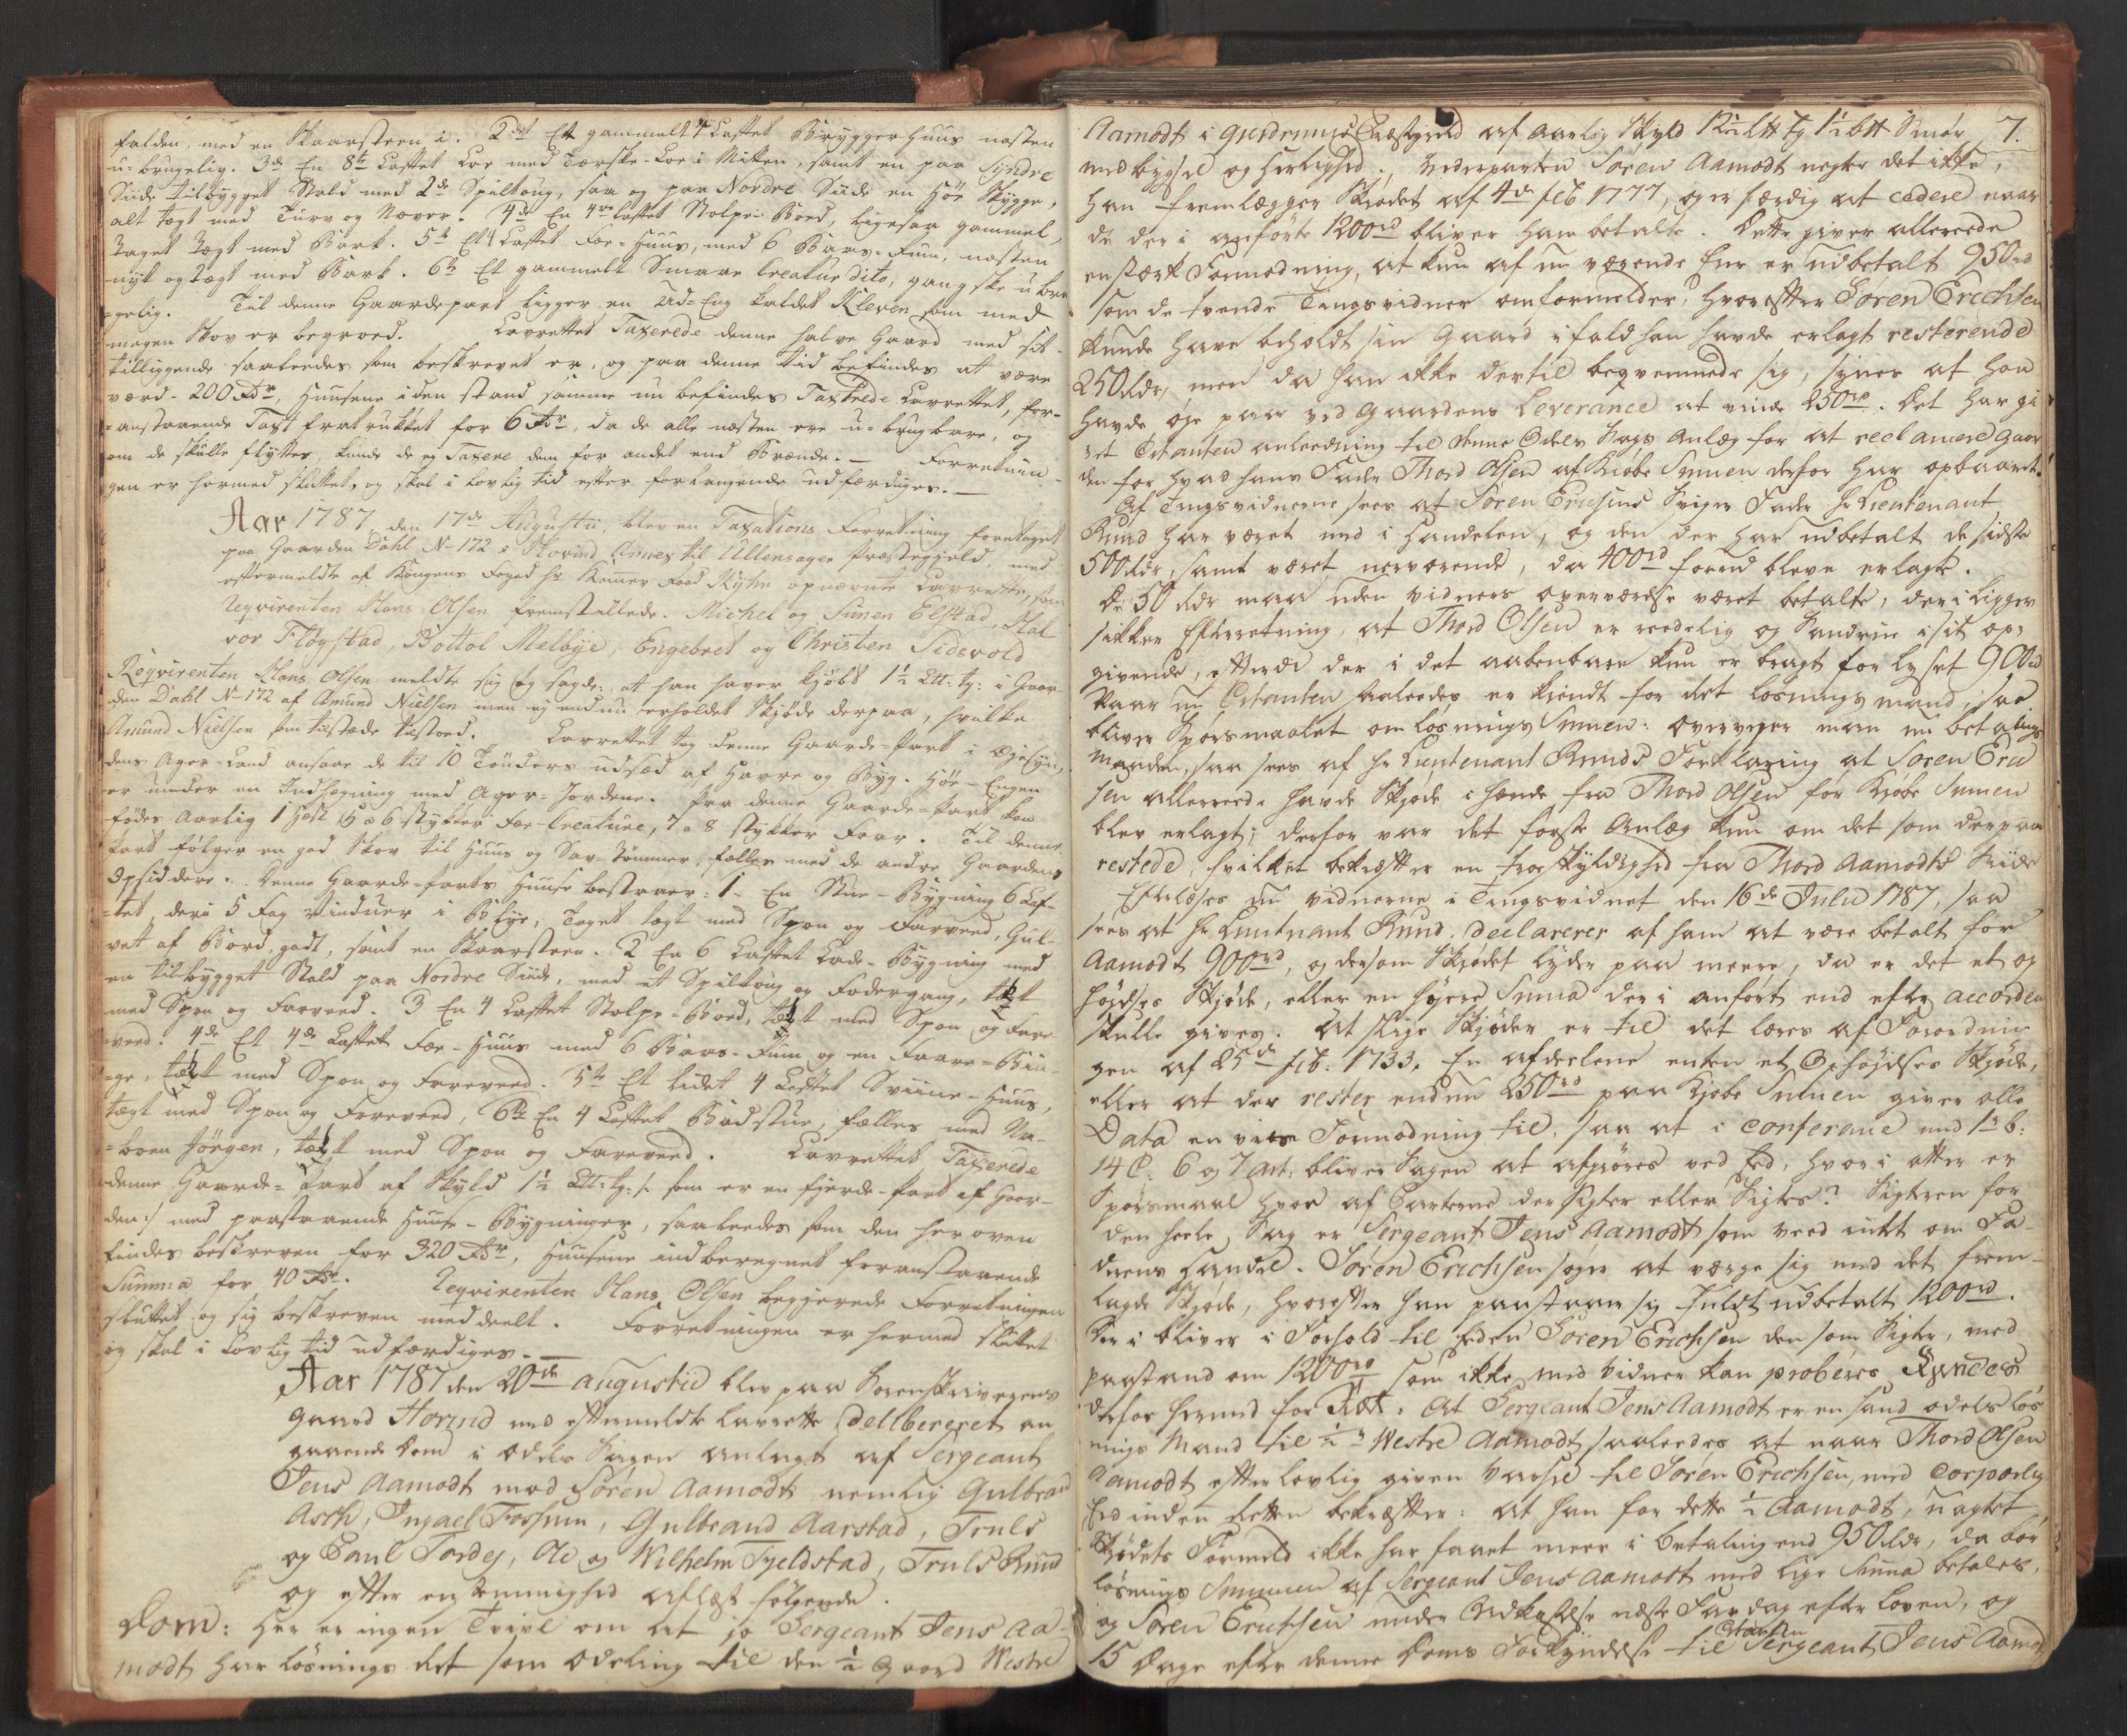 falden, med en Skaarsteen i. 2det Et gammelt 4 Laftet Bryggerhuus næsten
u-brugelig. 3de En 8te Laftet Loe med Tærske-Loe i Mitten, samt en paa Syndre
Siide tilbygget Stald med 2de Spiltoug, saa og paa Nordre Siide en Høe Skygge,
alt tægt med Turv og Næver. 4de En 4re Laftet Stolpe-Boed, ligesaa gammel,
Taget Tægt med Bark. 5te Et 4 Laftet Foe-Huus, med 6 Baas-Rum, næsten
nyt og Tægt med Bark. 6te Et gammelt Smaae Creature dito, gangske ubru
=gelig. Til denne Gaardepart ligger en Ud-Eng kaldet Kleven som med
megen Skov er begroed. Lavrettet Taxerede denne halve Gaard med sit
tilliggende saaledes som beskrevet er, og paa denne tid befindes at være
værd - 200 Rdr, Huusene i den stand samme nu befindes Taxerede Lavrettet, for-
=anstaaende Taxt fratrukket for 6 Rdr, da de alle næsten ere u-brugbare, og
om de skulle flyttes, kunde de ej Taxere dem for andet end Brænde. — Forretnin
gen er hermed sluttet, og skal i lovlig tid efter forlangende udfærdiges. —
Aar 1787 den 17de Augustii, blev en Taxations Forretning foretaget
paa Gaarden Dahl No 172 i Hovind Annex til Ullensager Præstegield, med
eftermeldte af Kongens Foged Hr Kemmer Raad Ryhn opnævnte Lavrette, som
Reqvirenten Hans Olsen fremstillede. Michel og Simen Elstad, Hal
vor Flogstad, Bottol Melbye, Engebret og Christen Sidevold
Reqvirenten Hans Olsen meldte sig og sagde: at han haver kjøbt 1½ Ltt. tg: i Gaar
den Dahl No 172 af Amund Nielsen men ej endnu erholdet Skjøde derpaa, hvilke
Amund Nielsen som tilstæde tilstoed. Lavrettet tog denne Gaarde-Part i Øjesyn,
dens Ager-Land ansaae de til 10 Tønders udsæd af Havre og Byg. Høe-Engen
er under en Indhægning med Ager-Jordene. Paa denne Gaarde-Part kan
fødes Aarlig 1 Hæst 5 a 6 stykker Fæe-Creature, 7 a 8 stykker Faar. Til denne
Part følger en god Skov til Huus og Sav-Tømmer, fælles med de andre Gaardens
Opsiddere. Denne Gaarde-Parts Huuse bestaaer: 1. En Stue-Bygning 6 Laf-
=tet, deri 5 Fag Vinduer i Blye, Taget lagt med Spon og Farveed, Gul-
vet af Bord, godt, samt en Skaarsteen. 2 En 6 Laftet Lade-Bygning med
en tilbygget Stald paa Nordre Siide, med et Spiltoug og Fodergang, tækt
med Spon og Farveed. 3 En 4 Laftet Stolpe-Boed, tækt med Spon og Fare
veed. 4de Et 4de Laftet Fæe-Huus med 6 Baas-Rum og en Faare-Bin-
=ge, tækt med Spon og Fareveed. 5te Et lidet 4 Laftet Sviine-Huus,
tægt med Spon og Foreveed, 6te En 4 Laftet Badstue, fælles med Na-
=boen Jørgen, tækt med Spon og Fareveed. Lavrettet Taxerede
denne Gaarde-Part af Skyld 1½ Ltt. tg: /: som er en fjerde-Part af Gaar-
den :/ med paastaaende Huuse-Bygninger, saaledes som den her oven
findes beskreven for 320 Rdr, Huusene indberegnet foranstaaende
Summa for 40 Rdr. Reqvirenten Hans Olsen begjerede Forretningen
sluttet og sig beskreven meddeelt. Forretningen er hermed sluttet
og skal i lovlig tid udfærdiges. —
Aar 1787 den 20de Augustii blev paa Sorenskriverens
Gaard Hovind med eftermeldte Lavrette Delibereret an
gaaende Dom i Odels Sagen anlagt af Sergeant
Jens Aamodt mod Søren Aamodt nemlig Gulbrand
Asch, Ingael Fossum, Gulbrand Aarstad, Truls
og Poul Tordej, Ole og Wilhelm Tyeldstad, Truls Rund
og efter eenstemmighed aflagt følgende.
Dom: Her er ingen Tvivl om at jo Sergeant Jens Aa-
modt har løsnings Ret som Odeling til den ½ Gaard Westre
7.
Aamodt i Præstegield af Aarlig Skyld Tg Smør
med bygsel og Herlighed. Vederparten Søren Aamodt negter det ikke,
han fremlægger Skiødet af 4de feb. 1777, og er færdig at cedere naar
de der i anførte 1200rd bliver ham betalte. Dette giver allereede
en stærk Formodning, at kun af nu værende Eier er udbetalt 950rd
som de tvende Tingsvidner omformelder, hvorefter Søren Erichsen
kunde have beholdt sin Gaard ifald han havde erlagt resterende
250 Rdr, men da han ikke dertil beqvemmede sig, synes at han
havde øje paa ved Gaardens Leverance at vinde 250rd. Det har gi
vet Citanten anledning til denne Odels Sags Anlæg for at reclamere Gaar
den for hvad hans Fader Thord Olsen af Kiøbe Summen derfor har opbaaret.
Af Tingsvidnerne sees at Søren Erichsens Sviger Fader Hr Lieutenant
Rund har været med i Handelen, og den der har udbetalt de sidste
500 Rdr, samt været nerværende, da 400rd forud bleve erlagte.
De 50 Rdr maa uden Vidners overværelse været betalte, deri ligger
sikker Efterretning, at Thord Olsen er reedelig og Sandrue i sit op-
givende, efterdi der i det aabenbare kun er bragt for lyset 900rd
Naar nu Citanten saaledes er kiendt for det løsnings mand, saa
bliver Spørsmaalet om løsnings Summen: overveyer man nu betalings
Maaden, saa sees af Hr Lieutenant Runds Forklaring at Søren Eric
sen allereede havde Skjøde i hænde fra Thord Olsen før Kjøbe Summen
blev erlagt; derfor var det første Anlæg kun om det som derpaa
restede, hvilket bekræfter en Troeskyldighed fra Thord Aamodts Siide
Efterlæses nu vidnerne i Tingsvidnet den 16de Julii 1787, saa
sees at Hr Lieutnant Rund declarerer af ham at være betalt for
Aamodt 900rd, og dersom Skiødet lyder paa meere, da er det et op
høyelses Skjøde, eller en høyere Summa der i anført end efter accorden
skulle gives. At slige Skjøder er til det læres af Forordnin
gen af 25de feb: 1733. En afdeelene enten et Ophøjelses Skjøde,
eller at der rester endnu 250rd paa Kjøbe Summen giver alle
Data en viss Formodning til, saa at i conferance med 1ste b:
14 C. 6 og 7 Art. bliver Sagen at afgiøres ved Eed, hvor i atter er
Spørsmaal hvor af Parterne der Sigter eller Sigtes? Sigteren for
den heele Sag er Sergeant Jens Aamodt som veed intet om Fa-
derens Handel. Søren Erichsen søger at værge sig med det frem-
lagde Skjøde, hvorefter han paastaaer sig fuldt udbetalt 1200rd.
Her i bliver i Forhold til Eeden Søren Erichsen den som Sigter, med
paastand om 1200rd som ikke med Vidner kan proberes Kiendes
derfor hermed for Ræt: At Sergeant Jens Aamodt er en sand odels løs
nings Mand til ½ Westre Aamodt saaledes at naar Thord Olsen
Aamodt efter lovlig given Varsel til Søren Erichsen, med Corporlig
Eed inden Retten bekræfter: at han for dette ½ Aamodt, uagtet
Skjødets Formeld ikke har faaet meer i betaling end 950 Rdr, da bør
løsnings Summen af Sergeant Jens Aamodt med lige Summa betales,
og Søren Erichsen under Udkastelse næste Fardag efter Loven, og
15 Dage efter denne Doms Forkyndelse til Citanten Sergeant Jens Aamodt